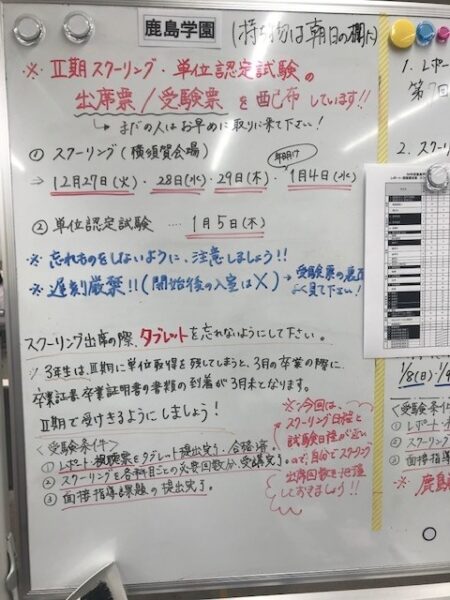 鹿島学園
(持ち物は朝日の欄に)
※Ⅱ期スクーリング・単位認定試験の
出席票/受験票 を配布しています!!
↳まだの人はお早めに取りに来て下さい!
① スクーリング(横須賀会場)
年明け
⇒ 12月27日(火)・28日(水)・29日(木)・1月4日(水)
② 単位認定試験 … 1月5日(木)
※ 忘れものをしないように、注意しましょう!!
※ 遅刻厳禁!!(開始後の入室は×)→受験票の裏面
よく見て下さい!
スクーリング出席の際、タブレットを忘れないようにして下さい。
※3年生は、Ⅲ期に単位取得を残してしまうと、3月の卒業の際に、
卒業証書、卒業証明書の書類の到着が3月末となります。
Ⅱ期で受けきるようにしましょう!
<受験条件>
① レポート・視聴票をタブレット提出完了、合格済
② スクーリングを各科目ごとの必要回数分、受講完了。
③ 面接指導課題の提出完了。
※今回は、
スクーリング日程と
試験日程が近い
ので、自分でスクーリング
出席回数を把握
しておきましょう!!
1. レポー
第7回
2. スクーリ
1/8(日)・1/9
<受験条件>
① レポート・
② スクーリング
③ 面接指導
※ 鹿島